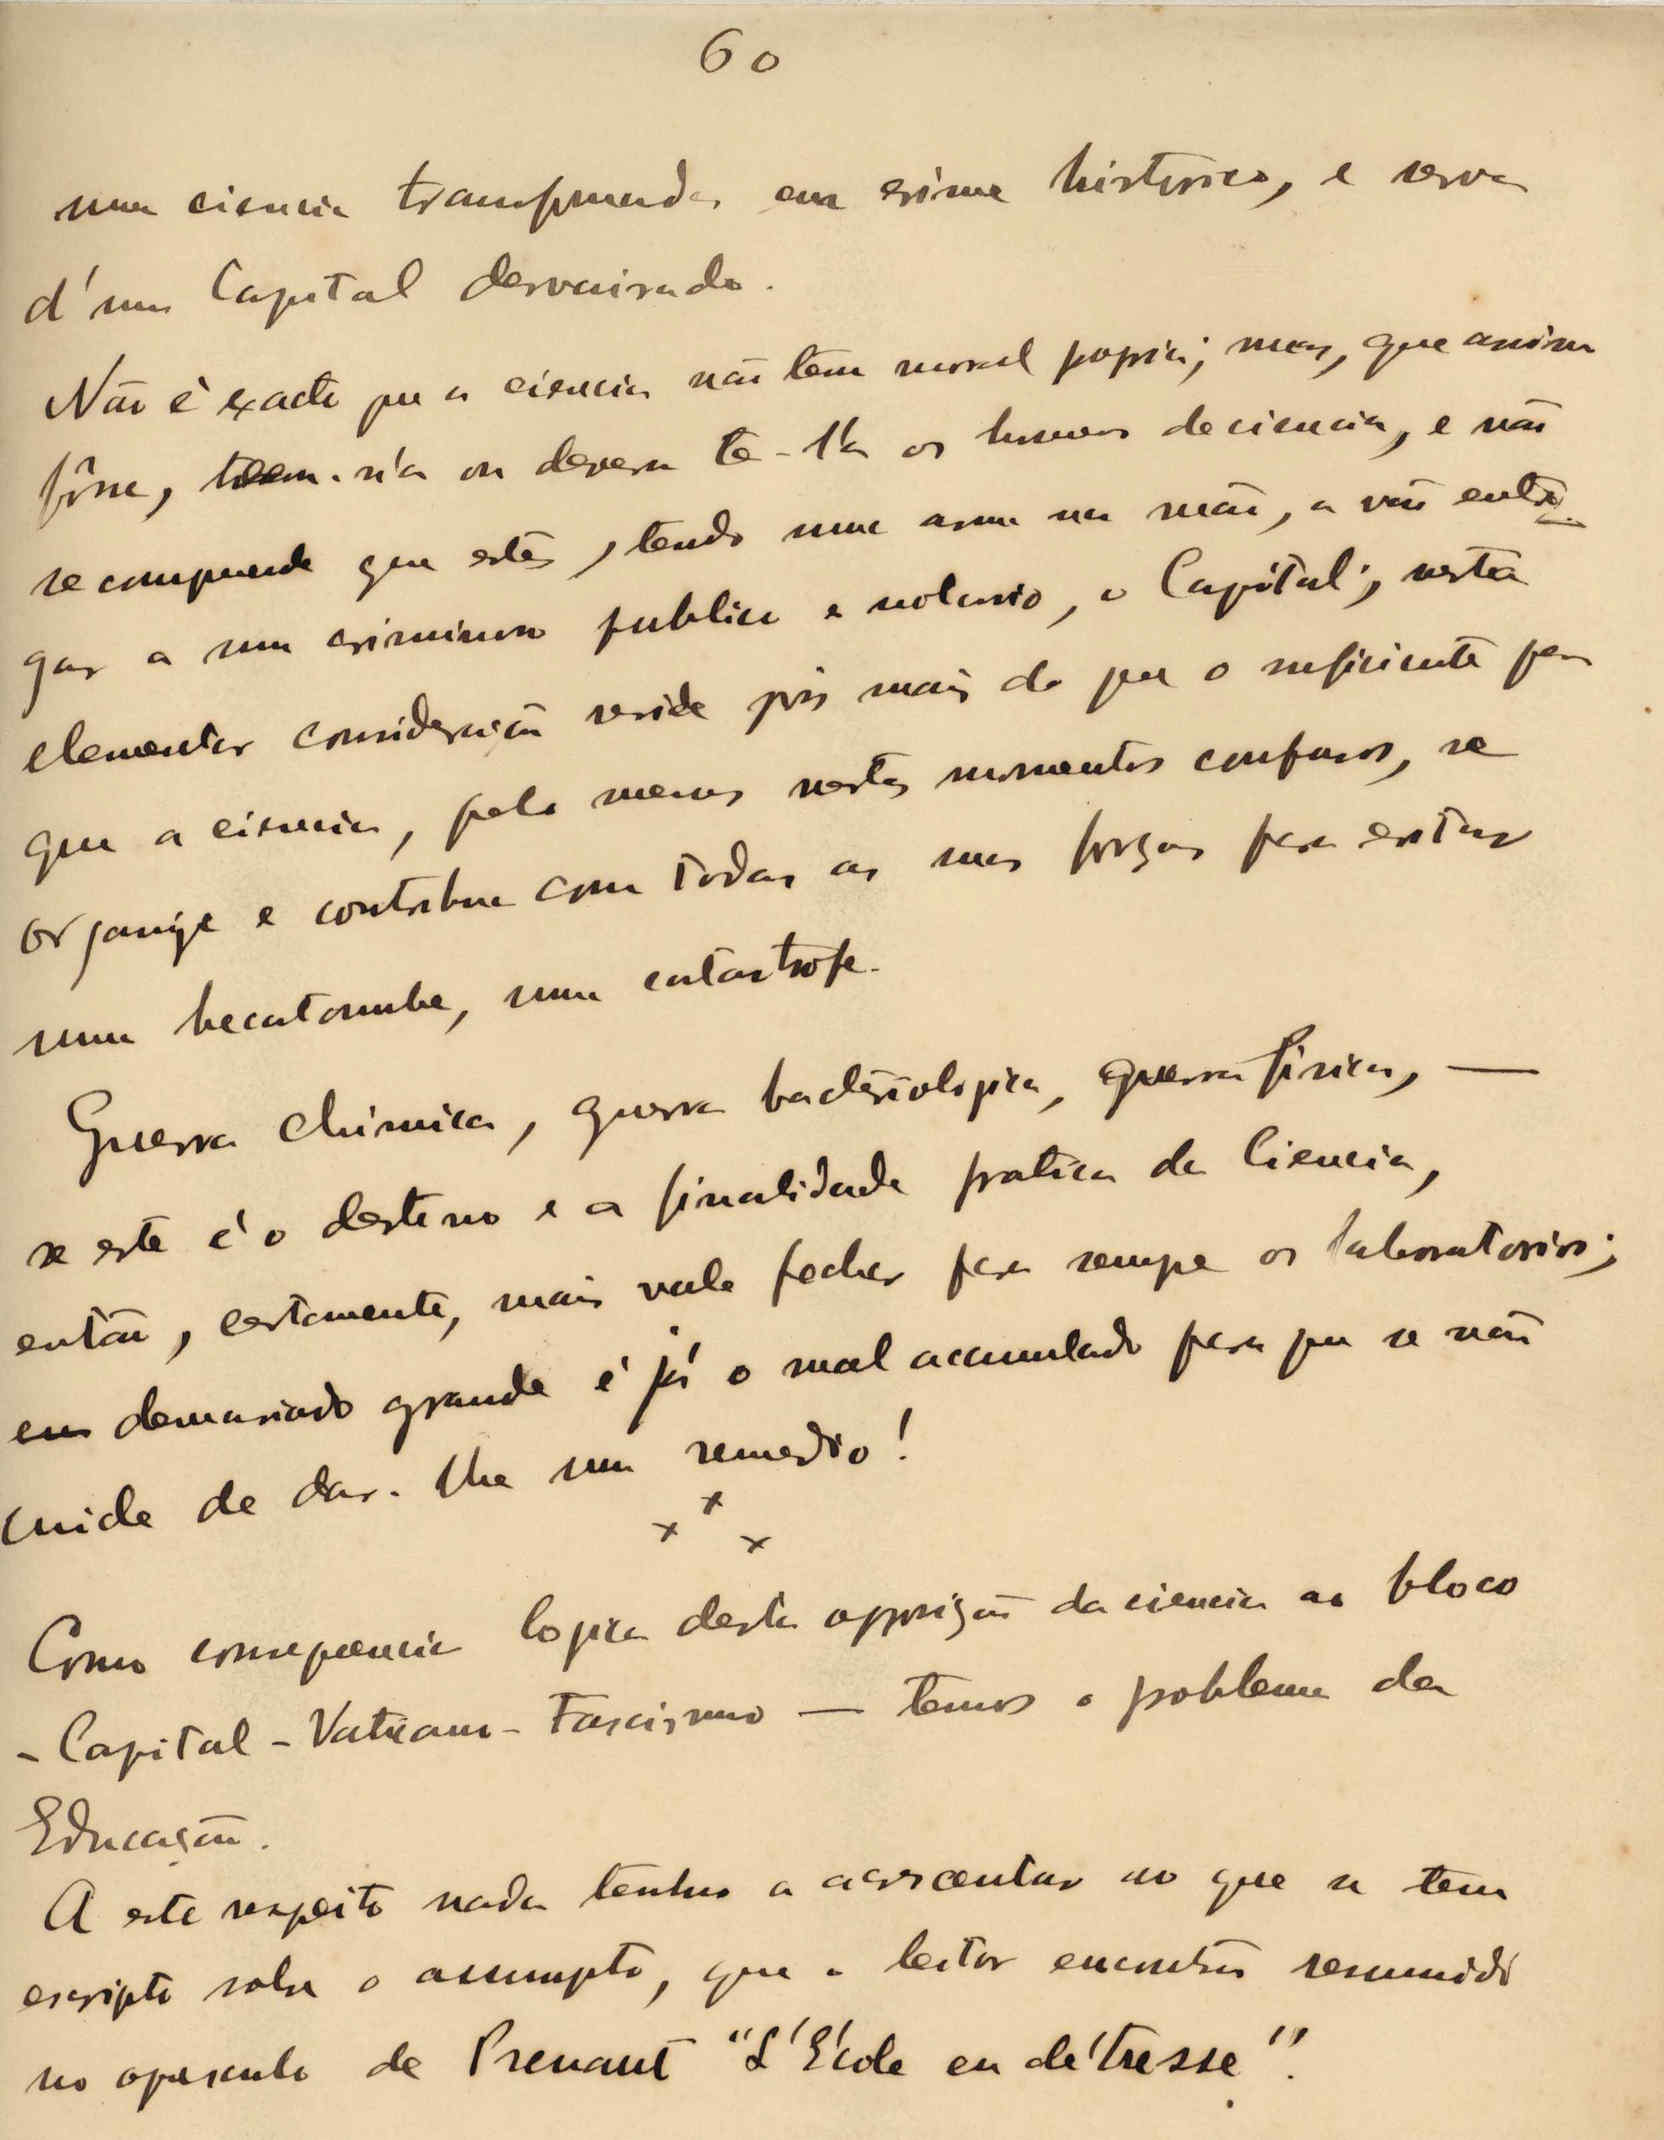 60
uma ciencia transformada em crime historico, e serva
d'um Capital desvairado.
Não é exacto que a ciencia não tem moral propria; mas, que assim
fôsse, teem-n'a ou devem te-l'a os homens de ciencia, e não
se comprende que estes, tendo uma arma na mão, a vão entre-
gar a um criminoso publico e notorio, o Capital; nesta
elementar consideração reside pois mais do que o suficiente para
que a ciencia, pelo menos nestes momentos confusos, se
organize e contribua com todas as suas forças para evitar
uma hecatombe, uma catastrofe.
Guerra chimica, guerra bacteriologica, guerra fisica, —
se este é o destino e a finalidade pratica da Ciencia,
então, certamente, mais vale fechar para sempre os laboratorios;
em demasiado grande é já o mal acumulado para que se não
cuide de dar-lhe um remedio!
x x x
Como consequencia logica desta opposição da ciencia ao bloco
- Capital - Vaticano - Fascismo — temos o problema da
Educação.
A este respeito nada tenho a acrescentar ao que se tem
escripto sobre o assumpto, que o leitor encontra resumido
no opusculo de Prenant "L'École en détresse".